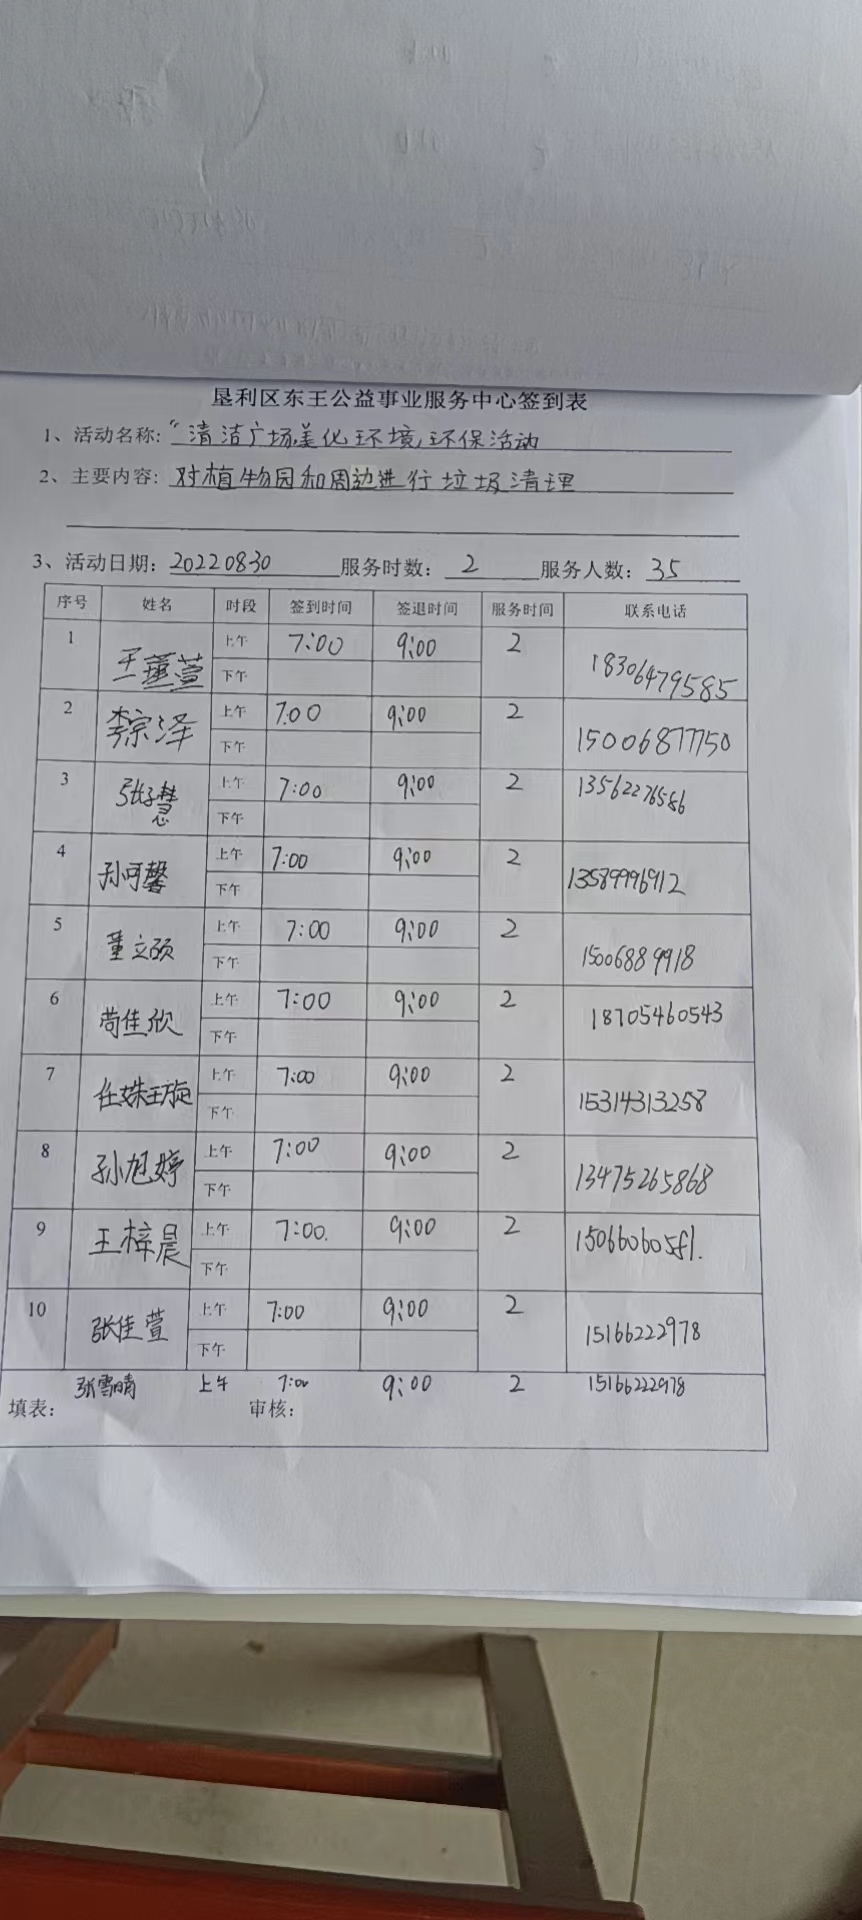 垦利区东王公益事业服务中心签到表
1、活动名称:“清洁广场,美化环境,环保活动
2、主要内容: 对植物园和周边进行垃圾清理
3、活动日期: 20220830 服务时数: 2 服务人数: 35
序号 姓名 时段 签到时间 签退时间 服务时间 联系电话
1 王董萱 上午 7:00 9:00 2 18306479585
下午
2 李宗泽 上午 7:00 9:00 2 15006877750
下午
3 张子慧 上午 7:00 9:00 2 13562276586
下午
4 孙可馨 上午 7:00 9:00 2 13589996912
下午
5 董立硕 上午 7:00 9:00 2 15006889918
下午
6 苟佳欣 上午 7:00 9:00 2 18705460543
下午
7 任姝璇 上午 7:00 9:00 2 15314313258
下午
8 孙旭婷 上午 7:00 9:00 2 13475265868
下午
9 王梓晨 上午 7:00. 9:00 2
下午
10 张佳萱 上午 7:00 9:00 2 15166222978
下午
张雪晴 上午 7:00 9:00 2 15166222978
填表: 审核: